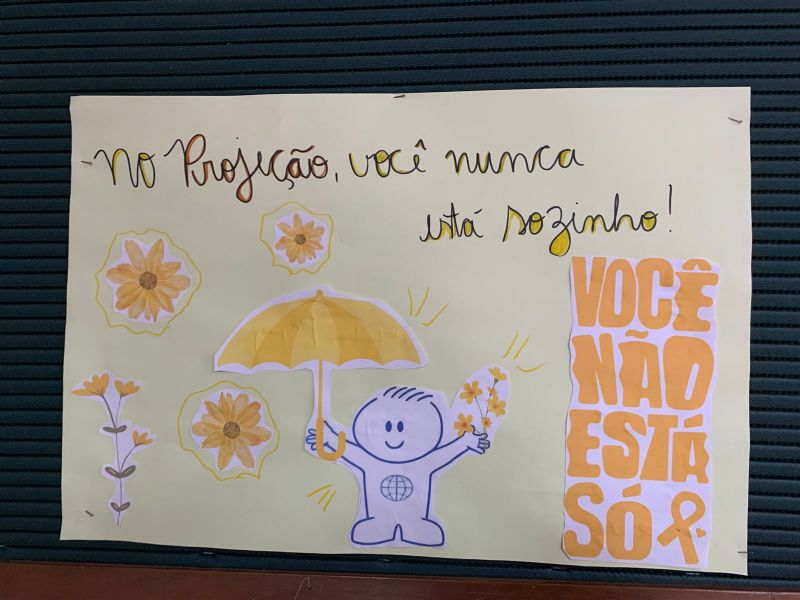 No Projeção, você nunca
está sozinho!
VOCÊ
NÃO
ESTÁ
SÓ